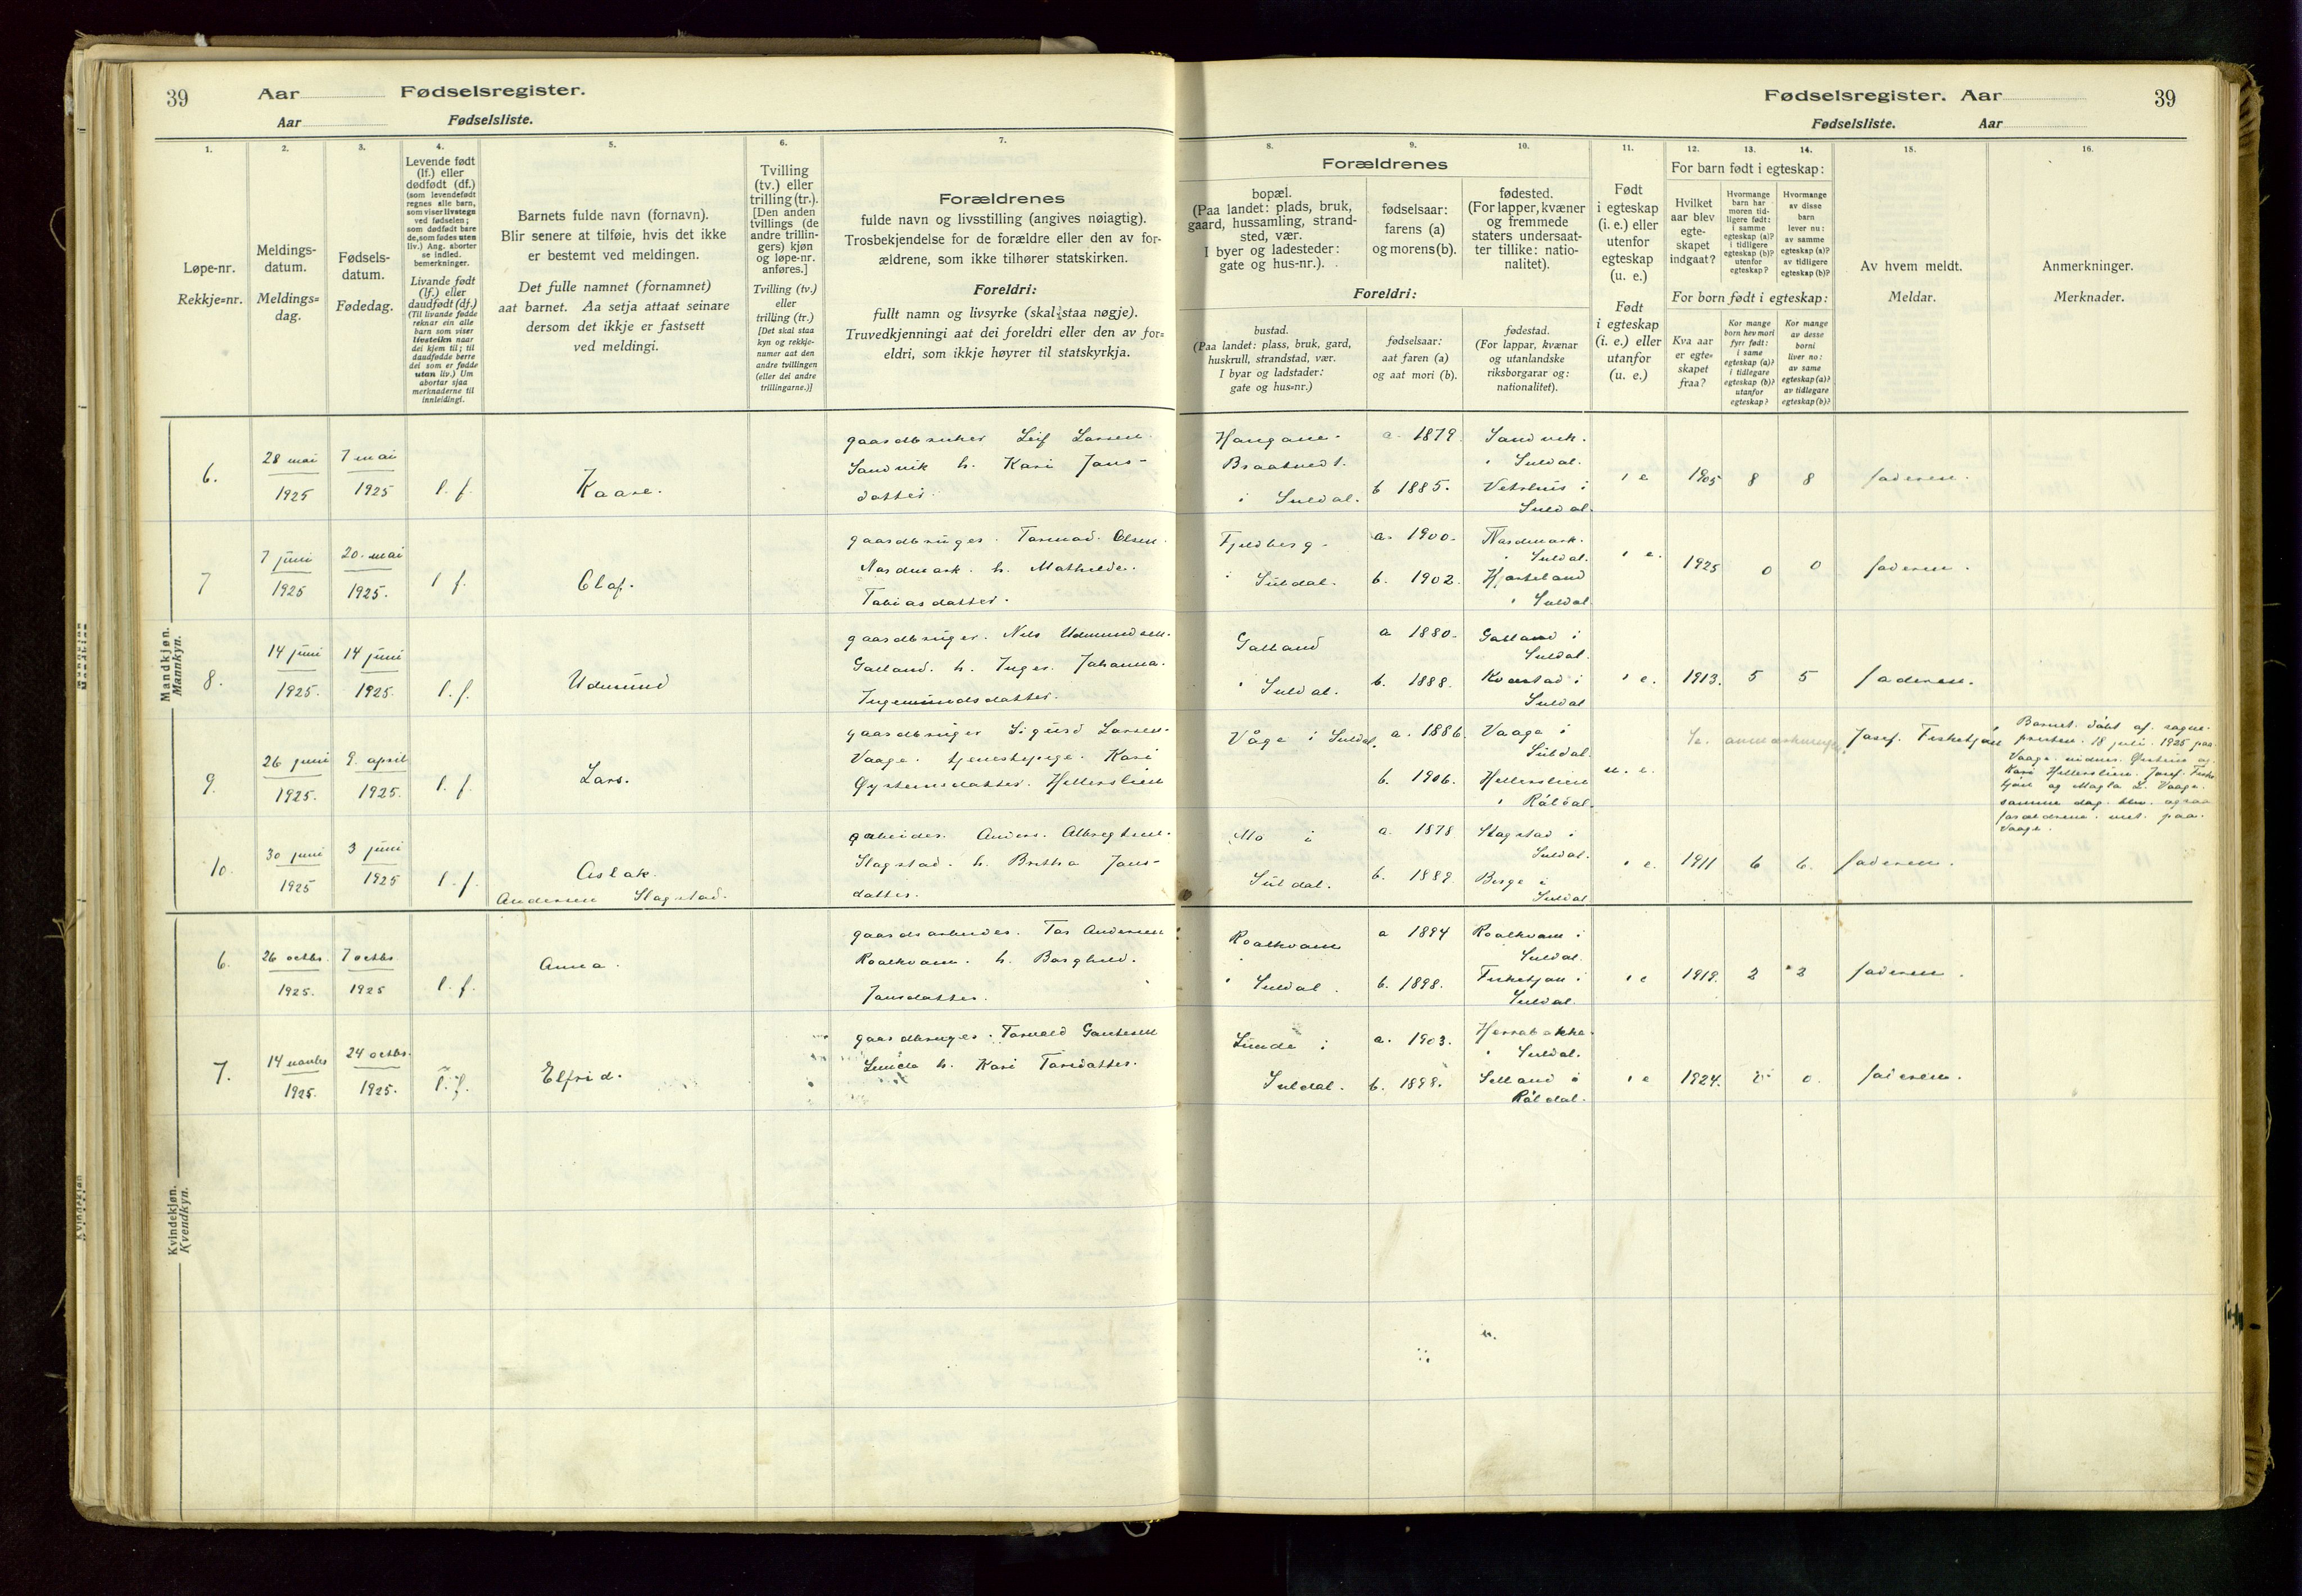 39 Aar Fødselsregister.
Aar Fødselsliste.
Fødselsregister. Aar 39
Fødselsliste. Aar
1.
Løpe-nr.
Rekkje=nr.
2.
Meldings-
datum.
Meldings=
dag.
3.
Fødsels-
datum.
Fødedag.
4.
Levende født
(lf.) eller
dødfødt (df.)
(som levendefødt
regnes alle barn,
som viser livstegn
ved fødselen;
som dødfødt bare
de, som fødes uten
liv.) Ang. aborter
se indled.
bemerkninger.
Livande født
(lf.) eller
daudfødt (df.)
(Til livande fødde
reknar ein alle
barn som viser
livsteikn naar
dei kjem til; til
daudfødde berre
dei som er fødde
utan liv.) Um
abortar sjaa
merknaderne til
innleidingi.
5.
Barnets fulde navn (fornavn).
Blir senere at tilføie, hvis det ikke
er bestemt ved meldingen.
Det fulle namnet (fornamnet)
aat barnet. Aa setja attaat seinare
dersom det ikkje er fastsett
ved meldingi.
6.
Tvilling
(tv.) eller
trilling (tr.).
[Den anden
tvillings (de
andre trillin-
gers) kjøn
og løpe-nr.
anføres.]
Tvilling (tv.)
eller
trilling (tr.)
[Det skal staa
kyn og rekkje-
numer aat den
andre tvillingen
(eller dei andre
trillingarne.)]
7.
Forældrenes
fulde navn og livsstilling (angives nøiagtig).
Trosbekjendelse for de forældre eller den av for-
ældrene, som ikke tilhører statskirken.
Foreldri:
fullt namn og livsyrke (skal staa nøgje).
Truvedkjenningi aat dei foreldri eller den av for=
eldri, som ikkje høyrer til statskyrkja.
8.
Forældrenes
bopæl.
(Paa landet: plads, bruk,
gaard, hussamling, strand-
sted, vær.
I byer og ladesteder:
gate og hus-nr.).
Foreldri:
bustad.
(Paa landet: plass, bruk, gard,
huskrull, strandstad, vær.
I byar og ladstader:
gate og hus=nr.)
9.
fødselsaar:
farens (a)
og morens (b).
fødselsaar:
aat faren (a)
og aat mori (b).
10.
fødested.
(For lapper, kvæner
og fremmede
staters undersaat-
ter tillike: natio-
nalitet).
fødestad.
(For lappar, kvænar
og utanlandske
riksborgarar og:
nationalitet).
11.
Født
i egteskap
(i. e.) eller
utenfor
egteskap
(u. e.)
Født
i egteskap
(i. e.) eller
utanfor
(u. e.)
12. 13. 14.
For barn født i egteskap:
Hvilket
aar blev
egte-
skapet
indgaat?
Hvormange
barn har
moren tid-
ligere født:
i samme
egteskap (a)?
i tidligere
egteskap (b)?
utenfor
egteskap?
Hvormange
av disse
barn
lever nu:
av samme
egteskap (a)?
av tidligere
egteskap (b)?
For born født i egteskap:
Kva aar
er egte=
skapet
fraa?
Kor mange
born hev mori
fyrr født:
i same
egteskap (a)?
i tidlegare
egteskap (b)?
utanfor
egteskap?
Kor mange
av desse
borni
liver no:
av same
egteskap (a)?
av tidlegare
egteskap (b)?
15.
Av hvem meldt.
Meldar.
16.
Anmerkninger.
Merknader.
Mandkjøn.
Mannkyn.
6.
28 mai
1925
7 mai
1925
l. f.
Kaare.
gaardbruker Leif Larsen
Sandvik h. Kari Jans-
datter.
Braatvedt.
i Suldal.
a. 1879.
b 1885.
Sandvik.
i Suldal.
Vetrhus i
Suldal.
i e
1905
8
8
faderen.
7
7 juni
1925
20. mai
1925.
l f.
Olaf.
gaardbruger. Tormod. Olsen.
Nordmark. h. Mathilde.
Tobiasdatter.
Fjeldberg.
i Suldal.
a. 1900.
b. 1902.
Nordmark.
i Suldal.
Hjorteland
i Suldal.
i e.
1925
0
0
faderen.
8.
14 juni
1925.
14 juni
1925.
l. f.
Udmund
gaardbruger. Nils Udmundsen.
Galland. h. Inger. Johanna.
Ingemundsdatter.
Galland
i Suldal.
a 1880.
b. 1888.
Galland i
Suldal.
Kvæstad i
Suldal
i e.
1913.
5
5
faderen.
9.
26 juni
1925.
9. april
1925.
l. f.
Lars.
gaardbruger Sigurd Larsen.
Vaage. tjenestepige. Kari
Øysteinsdatter. Hellerslien
Våge i Suldal.
a. 1886.
b. 1906.
Vaage i
Suldal.
Hellerslien
i Røldal.
u. e.
Se. anmerkningen.
Josef. Fisketjøn
Barnet. døbt af. sogne-
presten. 18 juli. 1925 paa
Vaage. vidner. Øistein og.
Kari Hellerslien. Josef. Fiske
tjøn og Magla L. Vaage.
samme dag. blev. ogsaa
forældrene. viet. paa.
Vaage.
10.
30 juni
1925
3 juni
1925
l. f.
Aslak.
Andersen Slagstad.
Anders. Albregtsen.
Slagstad. h. Bertha Jans-
datter.
Mo i
Suldal.
a. 1878
b. 1889
Slagstad i
Suldal.
Berge i
Suldal
i e.
1911
6
6.
faderen.
Kvindekjøn.
Kvendkyn.
6.
26 octbr.
1925.
7 octbr
1925
l. f.
Anna.
gaardsarbeider. Tor Andersen
Roalkvam. h. Borghild.
Jansdatter.
Roalkvam
i Suldal.
a 1894
b. 1898.
Roalkvam i
Suldal.
Fisketjøn i
Suldal.
i e
1919.
2
2
faderen.
7.
14 novbr
1925.
24 octbr.
1925.
l. f.
Elfrid.
gaardbruger. Torvald Gautesen
Lunde h. Kari Torsdatter.
Lunde i
Suldal.
a. 1903.
b. 1898.
Herrabakka.
i Suldal.
Selland i
Røldal.
i e
1924.
0
0.
faderen.